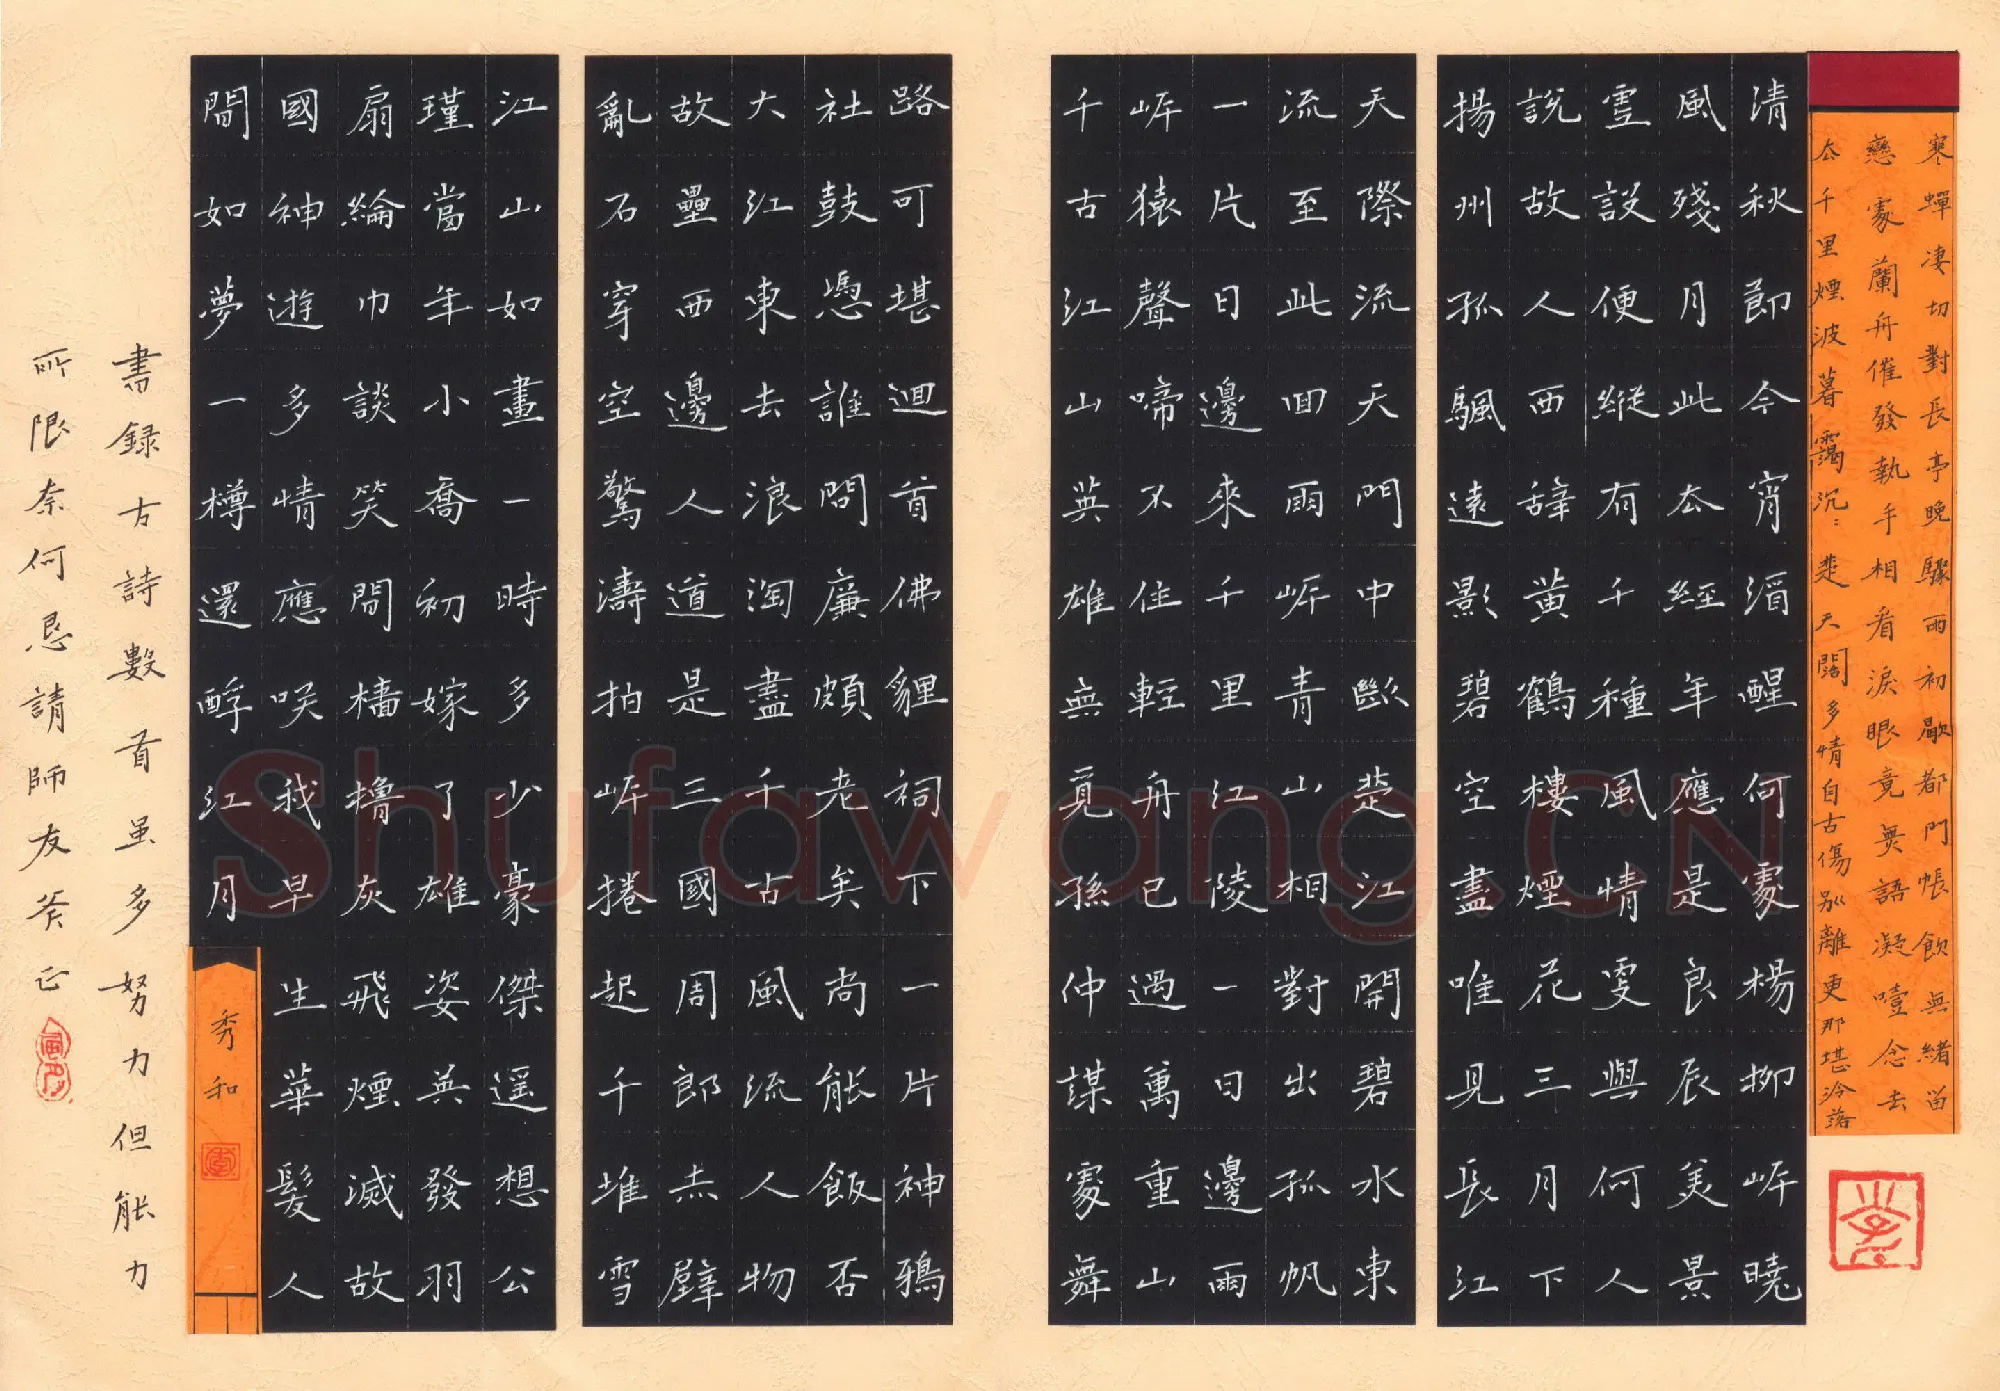 寒蟬淒切對長亭晚驟雨初歇都門帳飲無緒留
戀處蘭舟催發執手相看淚眼竟無語凝噎念去
厺千里煙波暮靄沉:楚天闊多情自古傷別離更那堪冷落
清秋節今宵酒醒何處楊柳岸曉
風殘月此去經年應是良辰美景
虛設便縱有千種風情更與何人
說故人西辭黃鶴樓煙花三月下
揚州孤颿遠影碧空盡唯見長江
天際流天門中斷楚江開碧水東
流至此回兩岸青山相對出孤帆
一片日邊來千里江陵一日邊兩
岸猿聲啼不住輕舟已過萬重山
千古江山英雄無覓孫仲謀處舞
路可堪迴首佛貍祠下一片神鴉
社鼓憑誰問廉頗老矣尚能飯否
大江東去浪淘盡千古風流人物
故壘西邊人道是三國周郎赤壁
亂石穿空驚濤拍岸捲起千堆雪
江山如畫一時多少豪傑遥想公
瑾當年小喬初嫁了雄姿英發羽
扇綸巾談笑間檣櫓灰飛煙滅故
國神遊多情應咲我早生華髮人
間如夢一樽還酹江月
秀和
書録古詩數首虽多努力但能力
所限奈何恳請師友斧正
Shufawang.CN